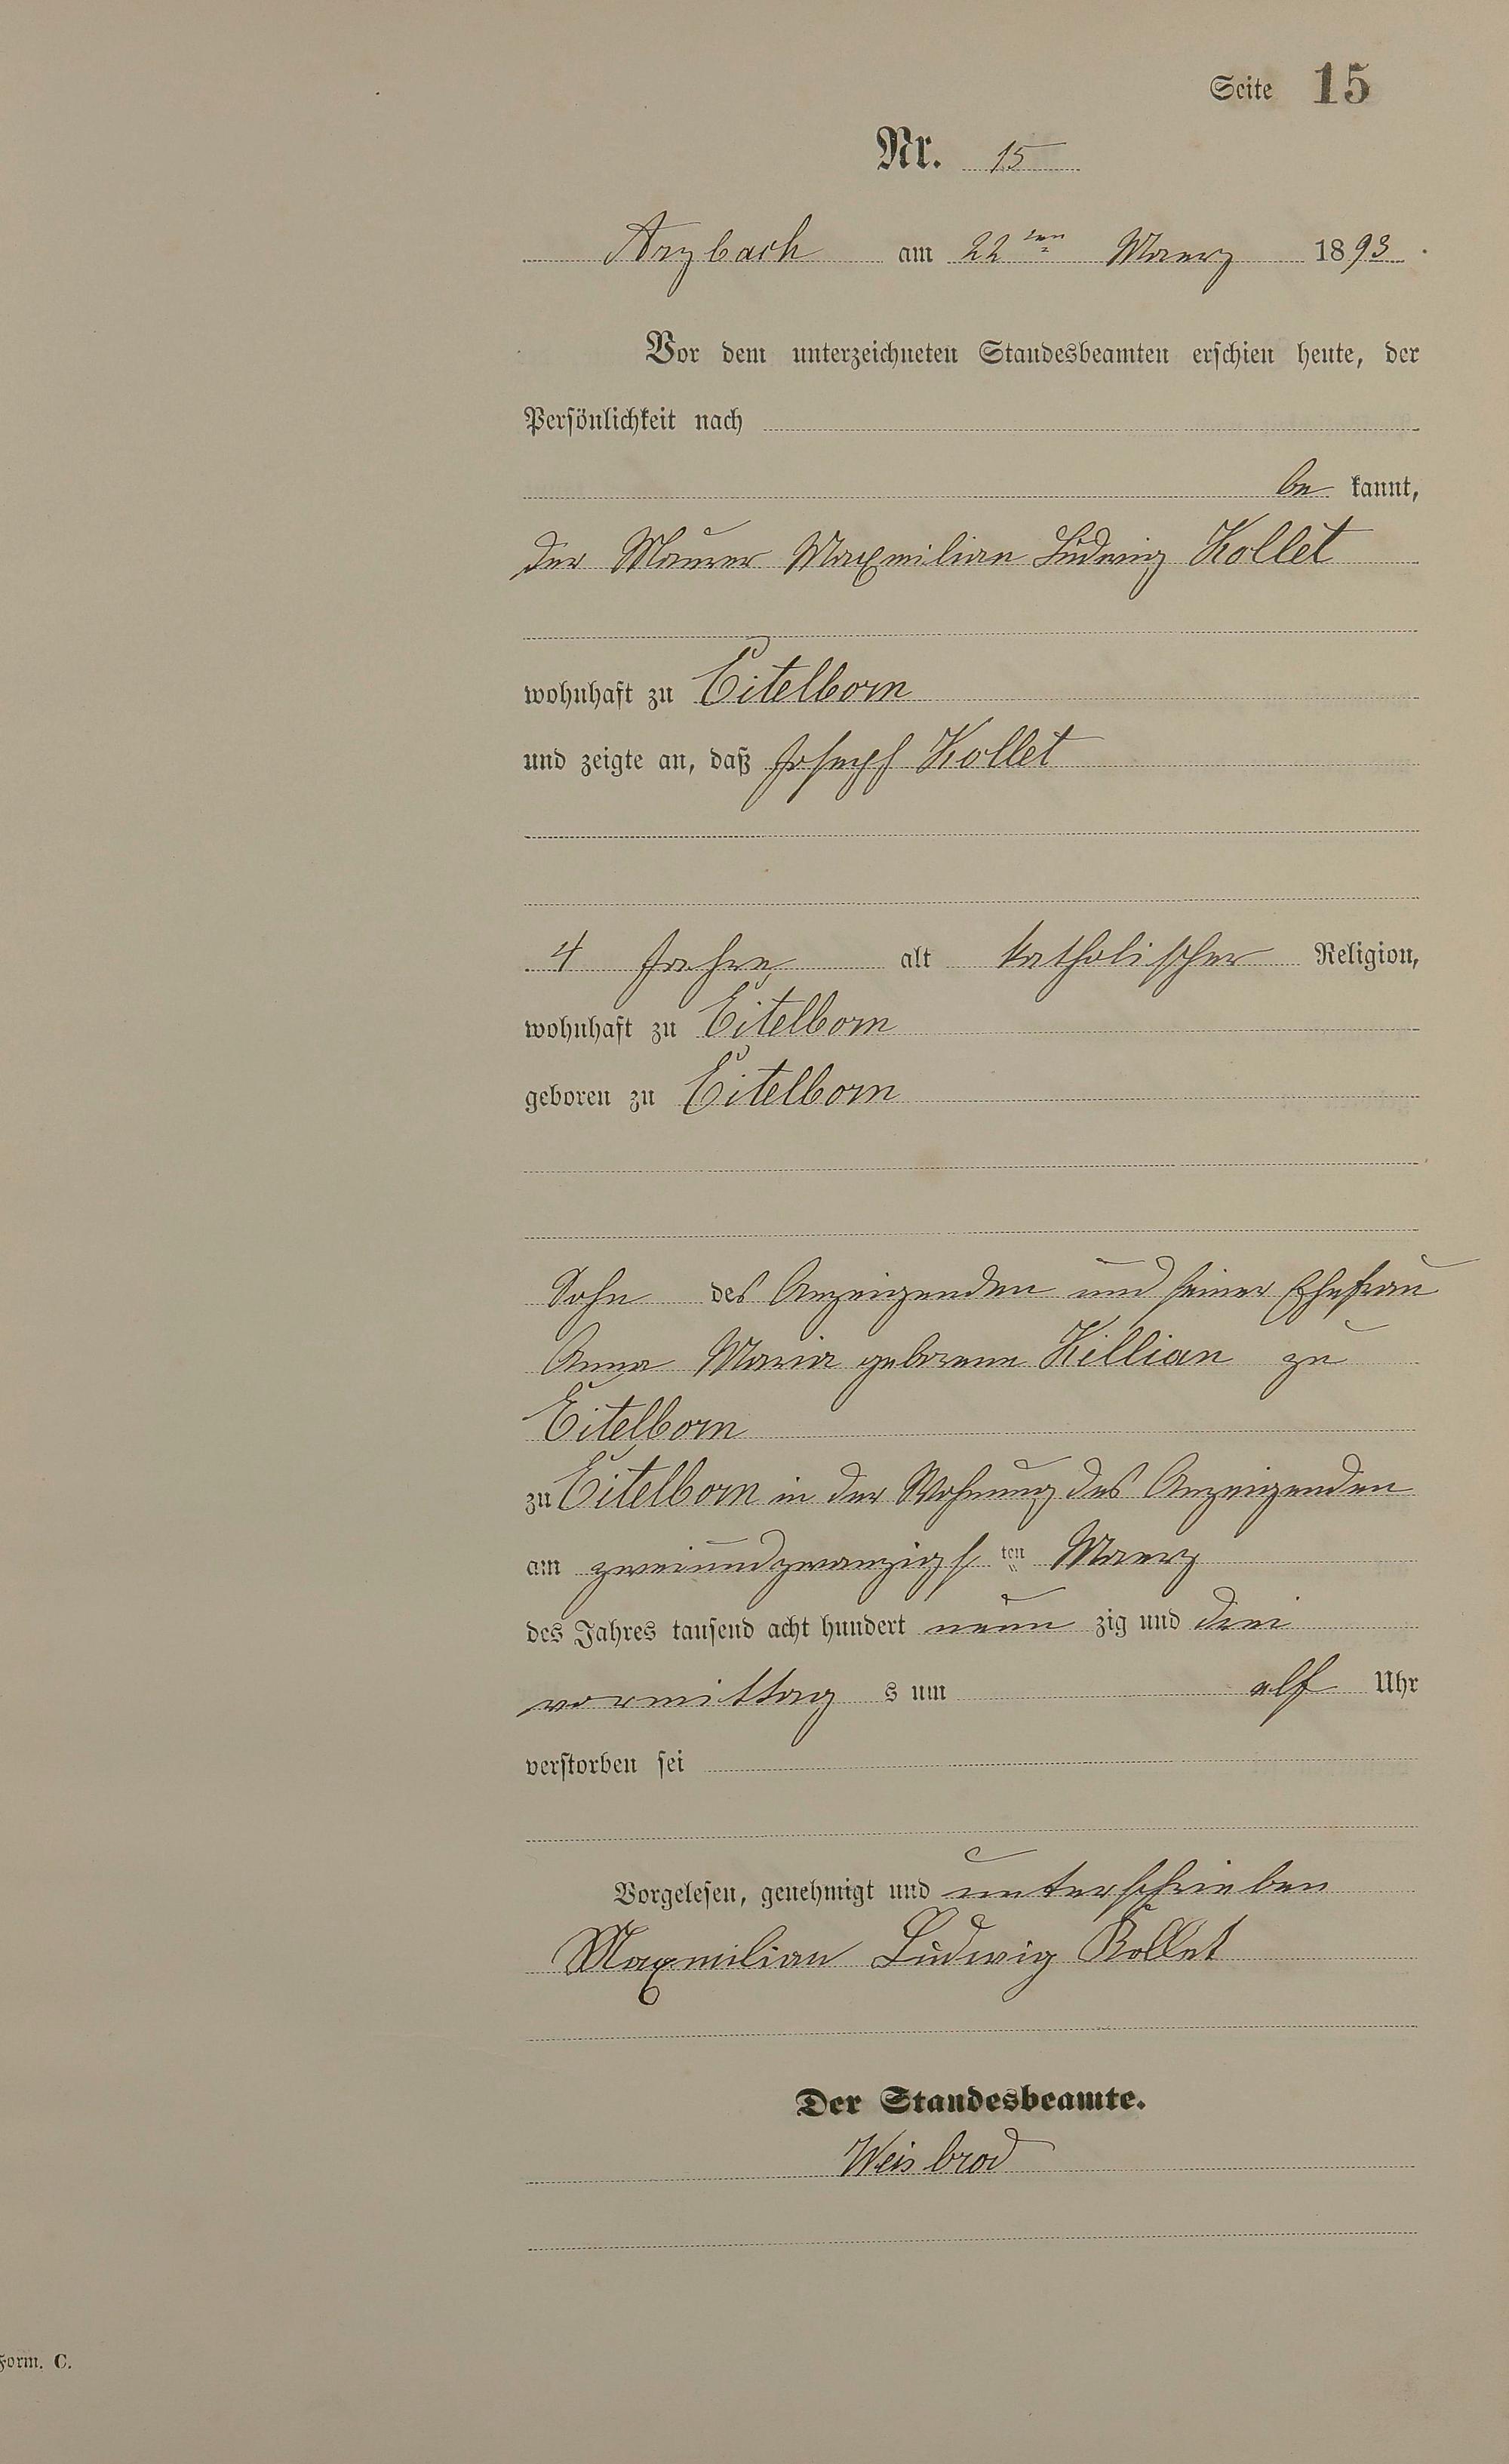 Seite 15
Nr. 15
Arzbach am 22ten Maerz 1893.
Vor dem unterzeichneten Standesbeamten erschien heute, der
Persönlichkeit nach
be kannt,
der Maurer Maxmilian Ludwig Kollet
wohnhaft zu Eitelborn
und zeigte an, daß Joseph Kollet
4 Jahre, alt katholischer Religion,
wohnhaft zu Eitelborn
geboren zu Eitelborn
Sohn des Anzeigenden und seiner Ehefrau
Anna Maria geborene Killian zu
Eitelborn
zu Eitelborn in der Wohnung des Anzeigenden
am zweiundzwanzigs ten Maerz
des Jahres tausend acht hundert neun zig und drei
vormittag s um elf Uhr
verstorben sei
Vorgelesen, genehmigt und unterschrieben
Maxmilian Ludwig Kollet
Der Standesbeamte.
Weisbrod
Form. C.